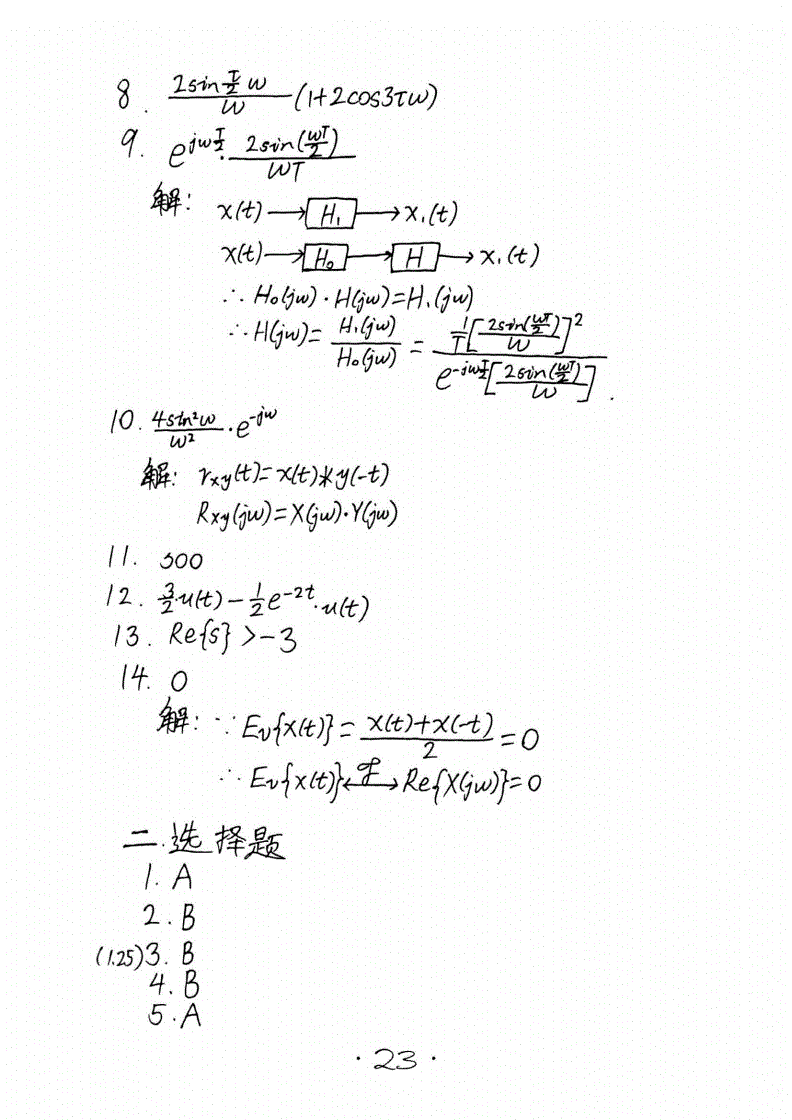 8. \frac{2sin\frac{τ}{2}ω}{ω}(1+2cos3τω)
9. e^{jω\frac{T}{2}}·\frac{2sin(\frac{ωT}{2})}{ωT}
解: x(t)→[H₁]→x₁(t)
x(t)→[H₀]→[H]→x₁(t)
∴H₀(jω)·H(jω)=H₁(jω)
∴H(jω)=\frac{H₁(jω)}{H₀(jω)}=\frac{\frac{1}{T}[\frac{2sin(\frac{ωT}{2})}{ω}]^2}{e^{-jω\frac{T}{2}}[\frac{2sin(\frac{ωT}{2})}{ω}]}.
10. \frac{4sin²ω}{ω²}·e^{-jω}
解: r_{xy}(t)=x(t)*y(-t)
R_{xy}(jω)=X(jω)·Y(jω)
11. 300
12. \frac{3}{2}u(t)-\frac{1}{2}e^{-2t}·u(t)
13. Re{s}>-3
14. 0
解: ∵Ev{x(t)}=\frac{x(t)+x(-t)}{2}=0
∴Ev{x(t)}\overset{ℱ}{↔}Re{X(jω)}=0
二.选择题
1. A
2. B
(1.25)3. B
4. B
5. A
·23·